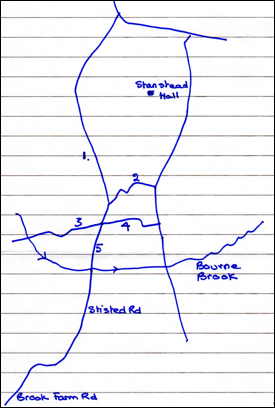 Stanstead
Hall
1.
2
3
4
5
Bourne
Brook
Stisted Rd
Brook Farm Rd